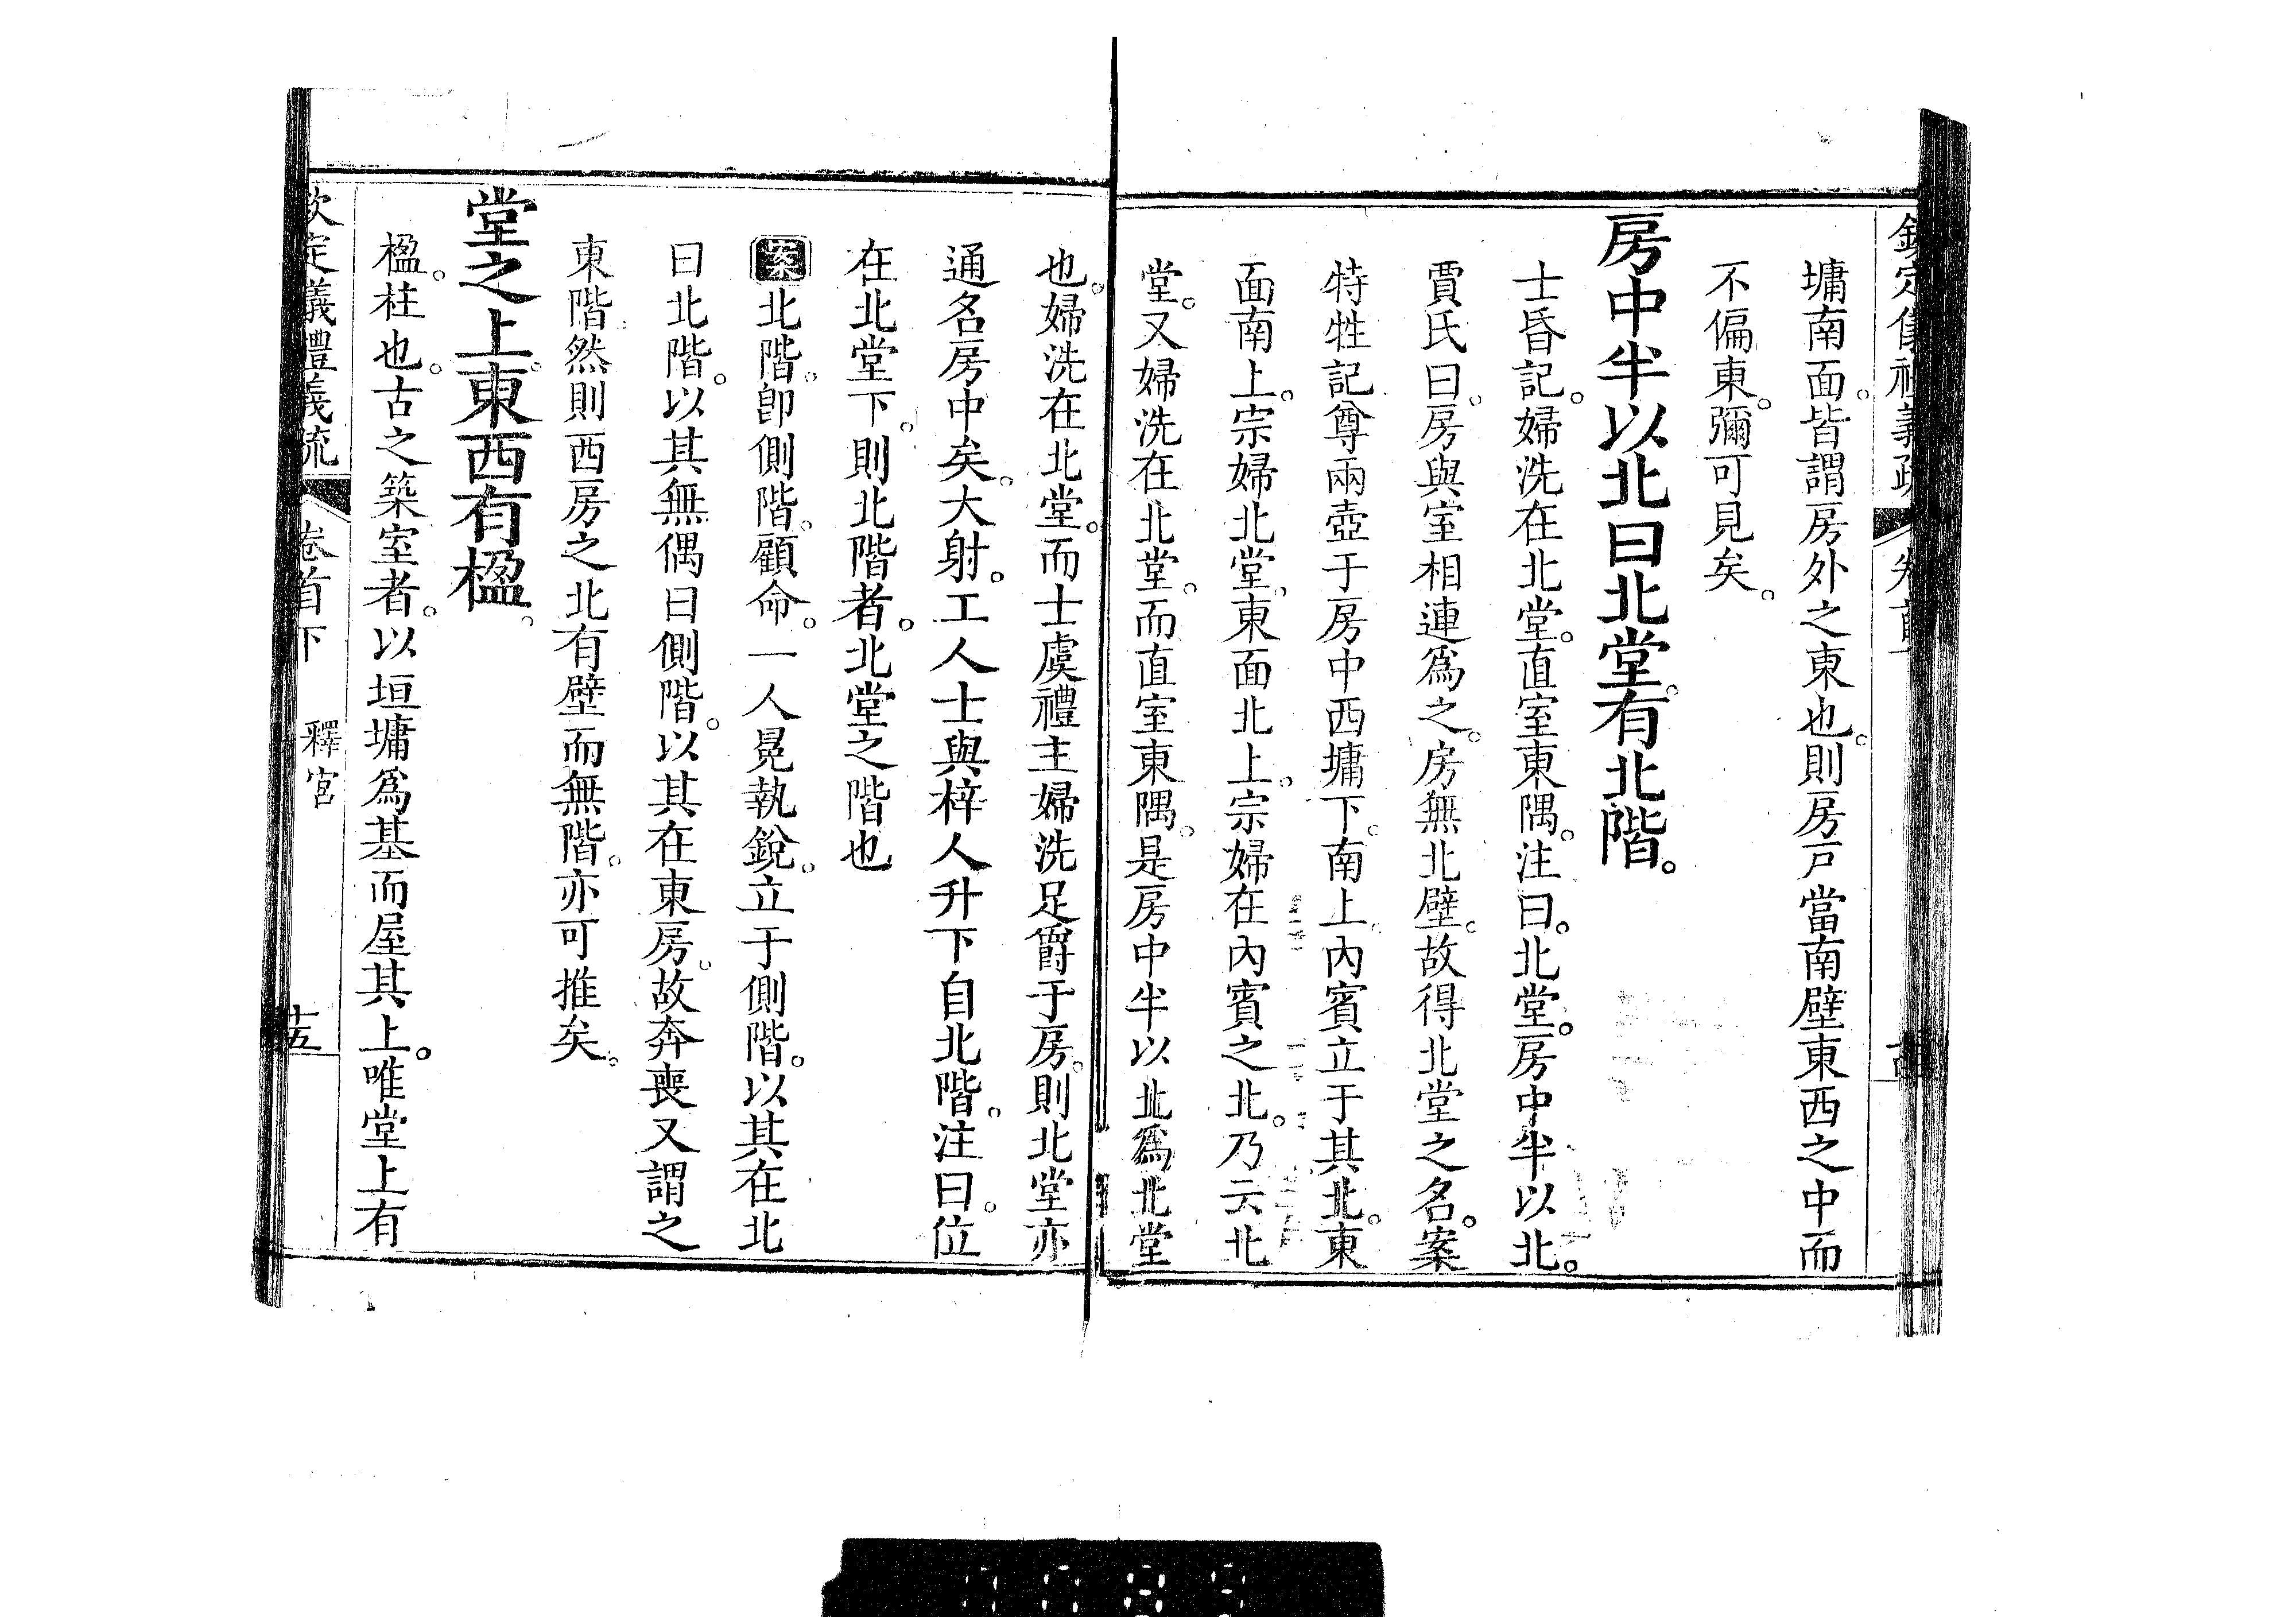 墉南面。皆謂房外之東也。則房戸當南壁東西之中而
不偏東。彌可見矣。
房中半以北曰北堂。有北階。
士昏記。婦洗在北堂。直室東隅。注曰。北堂。房中半以北。
賈氏曰。房與室相連爲之。房無北壁。故得北堂之名。案
特牲記尊兩壺于房中西墉下。南上。內賓立于其北。東
面南上。宗婦北堂。東面北上。宗婦在內賓之北。乃云北
堂。又婦洗在北堂。而直室東隅。是房中半以北爲北堂
也。婦洗在北堂。而士虞禮主婦洗足爵于房。則北堂亦
通名房中矣。大射。工人士與梓人升下自北階。注曰。位
在北堂下。則北階者。北堂之階也
案北階。卽側階。顧命。一人冕執銳。立于側階。以其在北
曰北階。以其無偶曰側階。以其在東房。故奔喪又謂之
東階然則西房之北有壁而無階。亦可推矣。
堂之上。東西有楹。
楹。柱也。古之築室者。以垣墉爲基而屋其上。唯堂上有
欽定儀禮義疏 卷首下 釋宮 十五